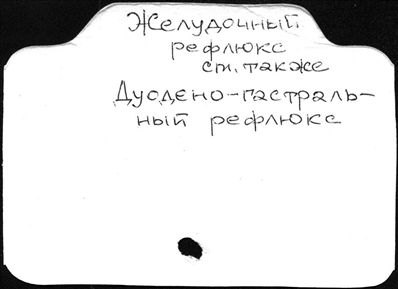 Желудочный
рефлюкс
см. также
Дуодено-гастраль-
ный рефлюкс